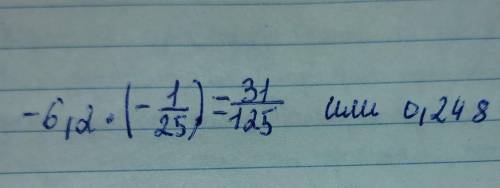 -6,2 · (-1/25) = 31/125 или 0,248